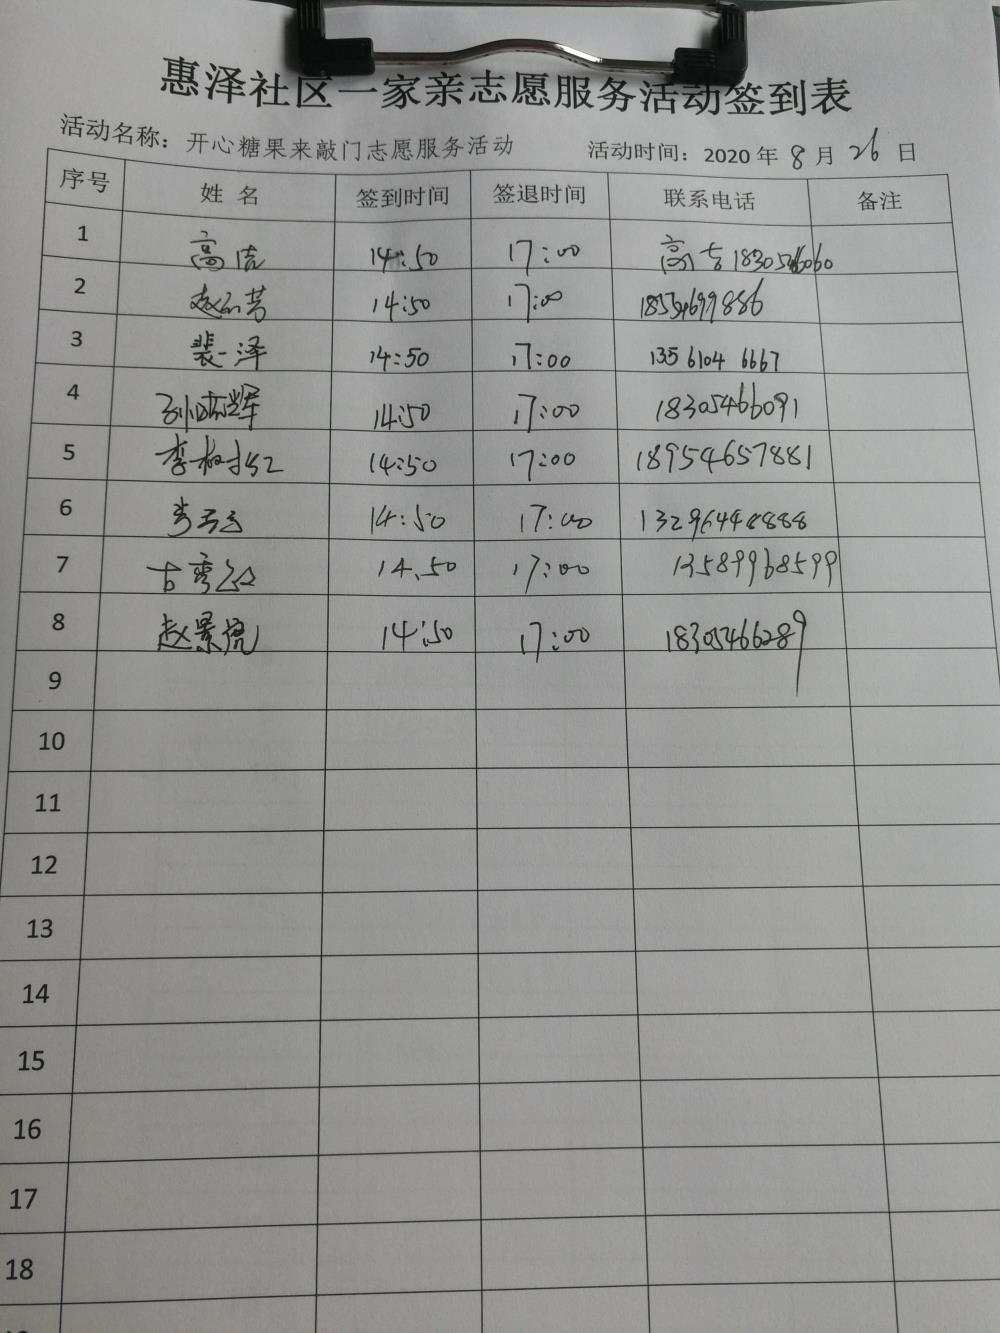 惠泽社区一家亲志愿服务活动签到表
活动名称：开心糖果来敲门志愿服务活动 活动时间：2020 年 8 月 26 日
序号 姓 名 签到时间 签退时间 联系电话 备注
1 高洁 14:50 17:00
2 14:50 17:00
3 裴一泽 14:50 17:00 135 6104 6667
4 14:50 17:00 18305466091
5 14:50 17:00 18954657881
6 14:50 17:00
7 14.50 17:00 13589968599
8 赵景虎 14:50 17:00 18305466289
9
10
11
12
13
14
15
16
17
18